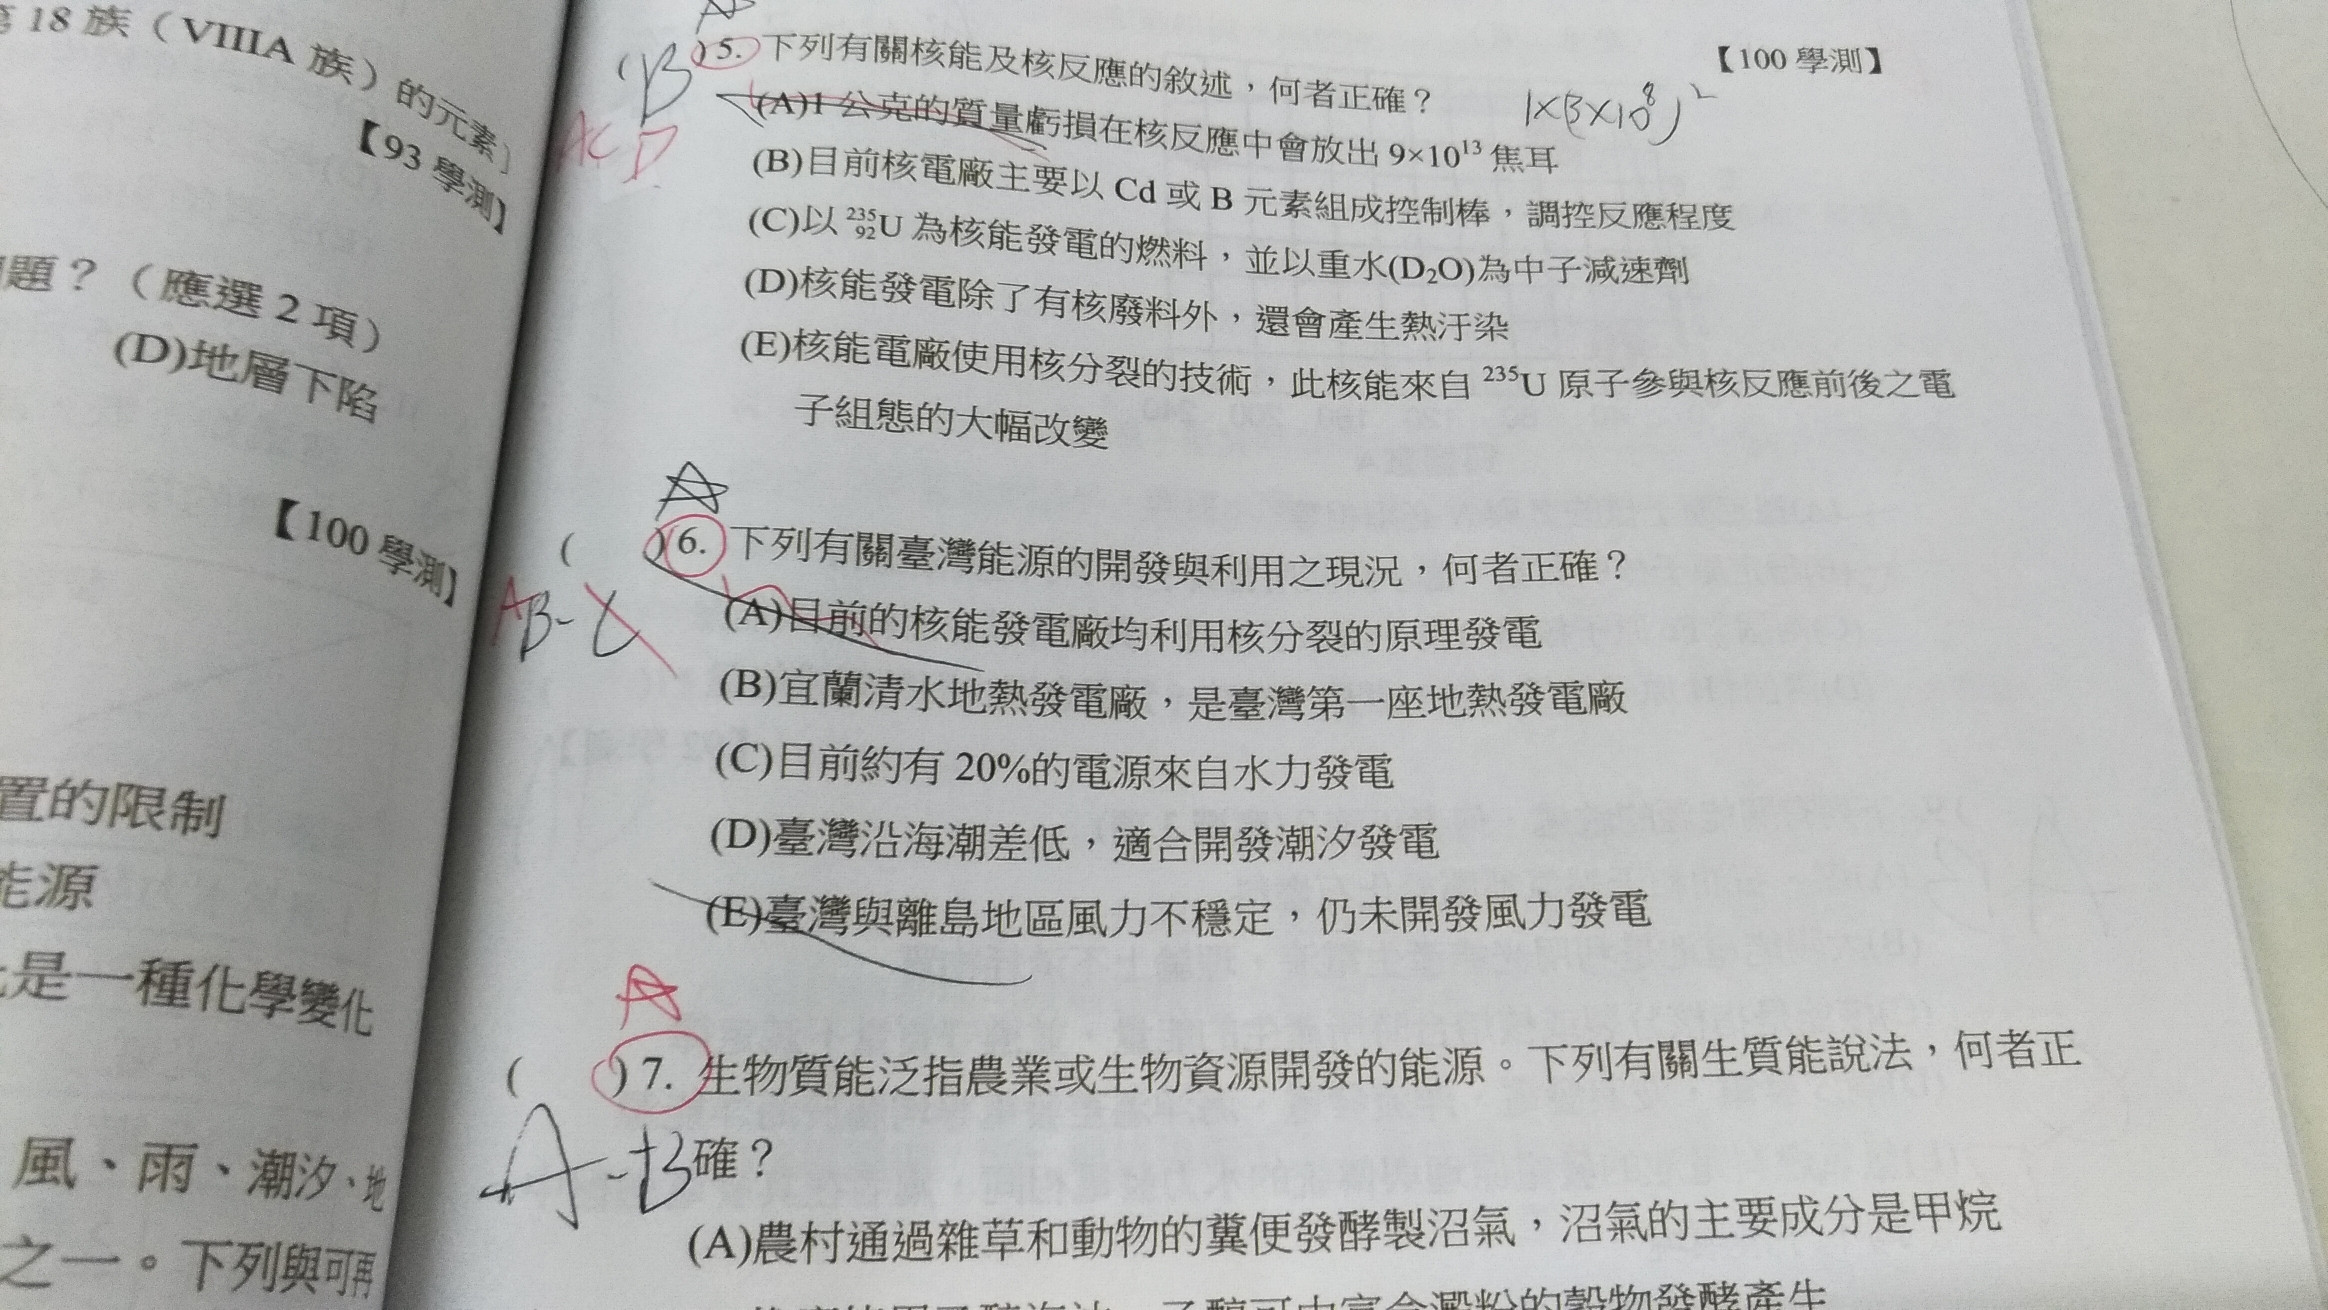 第 18 族（VIIIA 族）的元素
【93 學測】
問題？（應選 2 項）
(D)地層下陷
【100 學測】
置的限制
能源
是一種化學變化
風、雨、潮汐、地
之一。下列與可再
【100 學測】
( B )5. 下列有關核能及核反應的敘述，何者正確？
1×(3×10⁸)²
ACD
(A)1 公克的質量虧損在核反應中會放出 9×10¹³ 焦耳
(B)目前核電廠主要以 Cd 或 B 元素組成控制棒，調控反應程度
(C)以 ²³⁵₉₂U 為核能發電的燃料，並以重水(D₂O)為中子減速劑
(D)核能發電除了有核廢料外，還會產生熱汙染
(E)核能電廠使用核分裂的技術，此核能來自 ²³⁵U 原子參與核反應前後之電
子組態的大幅改變
( )6. 下列有關臺灣能源的開發與利用之現況，何者正確？
AB-
(A)目前的核能發電廠均利用核分裂的原理發電
(B)宜蘭清水地熱發電廠，是臺灣第一座地熱發電廠
(C)目前約有 20%的電源來自水力發電
(D)臺灣沿海潮差低，適合開發潮汐發電
(E)臺灣與離島地區風力不穩定，仍未開發風力發電
( )7. 生物質能泛指農業或生物資源開發的能源。下列有關生質能說法，何者正
A-B
確？
(A)農村通過雜草和動物的糞便發酵製沼氣，沼氣的主要成分是甲烷
的穀物發酵產生